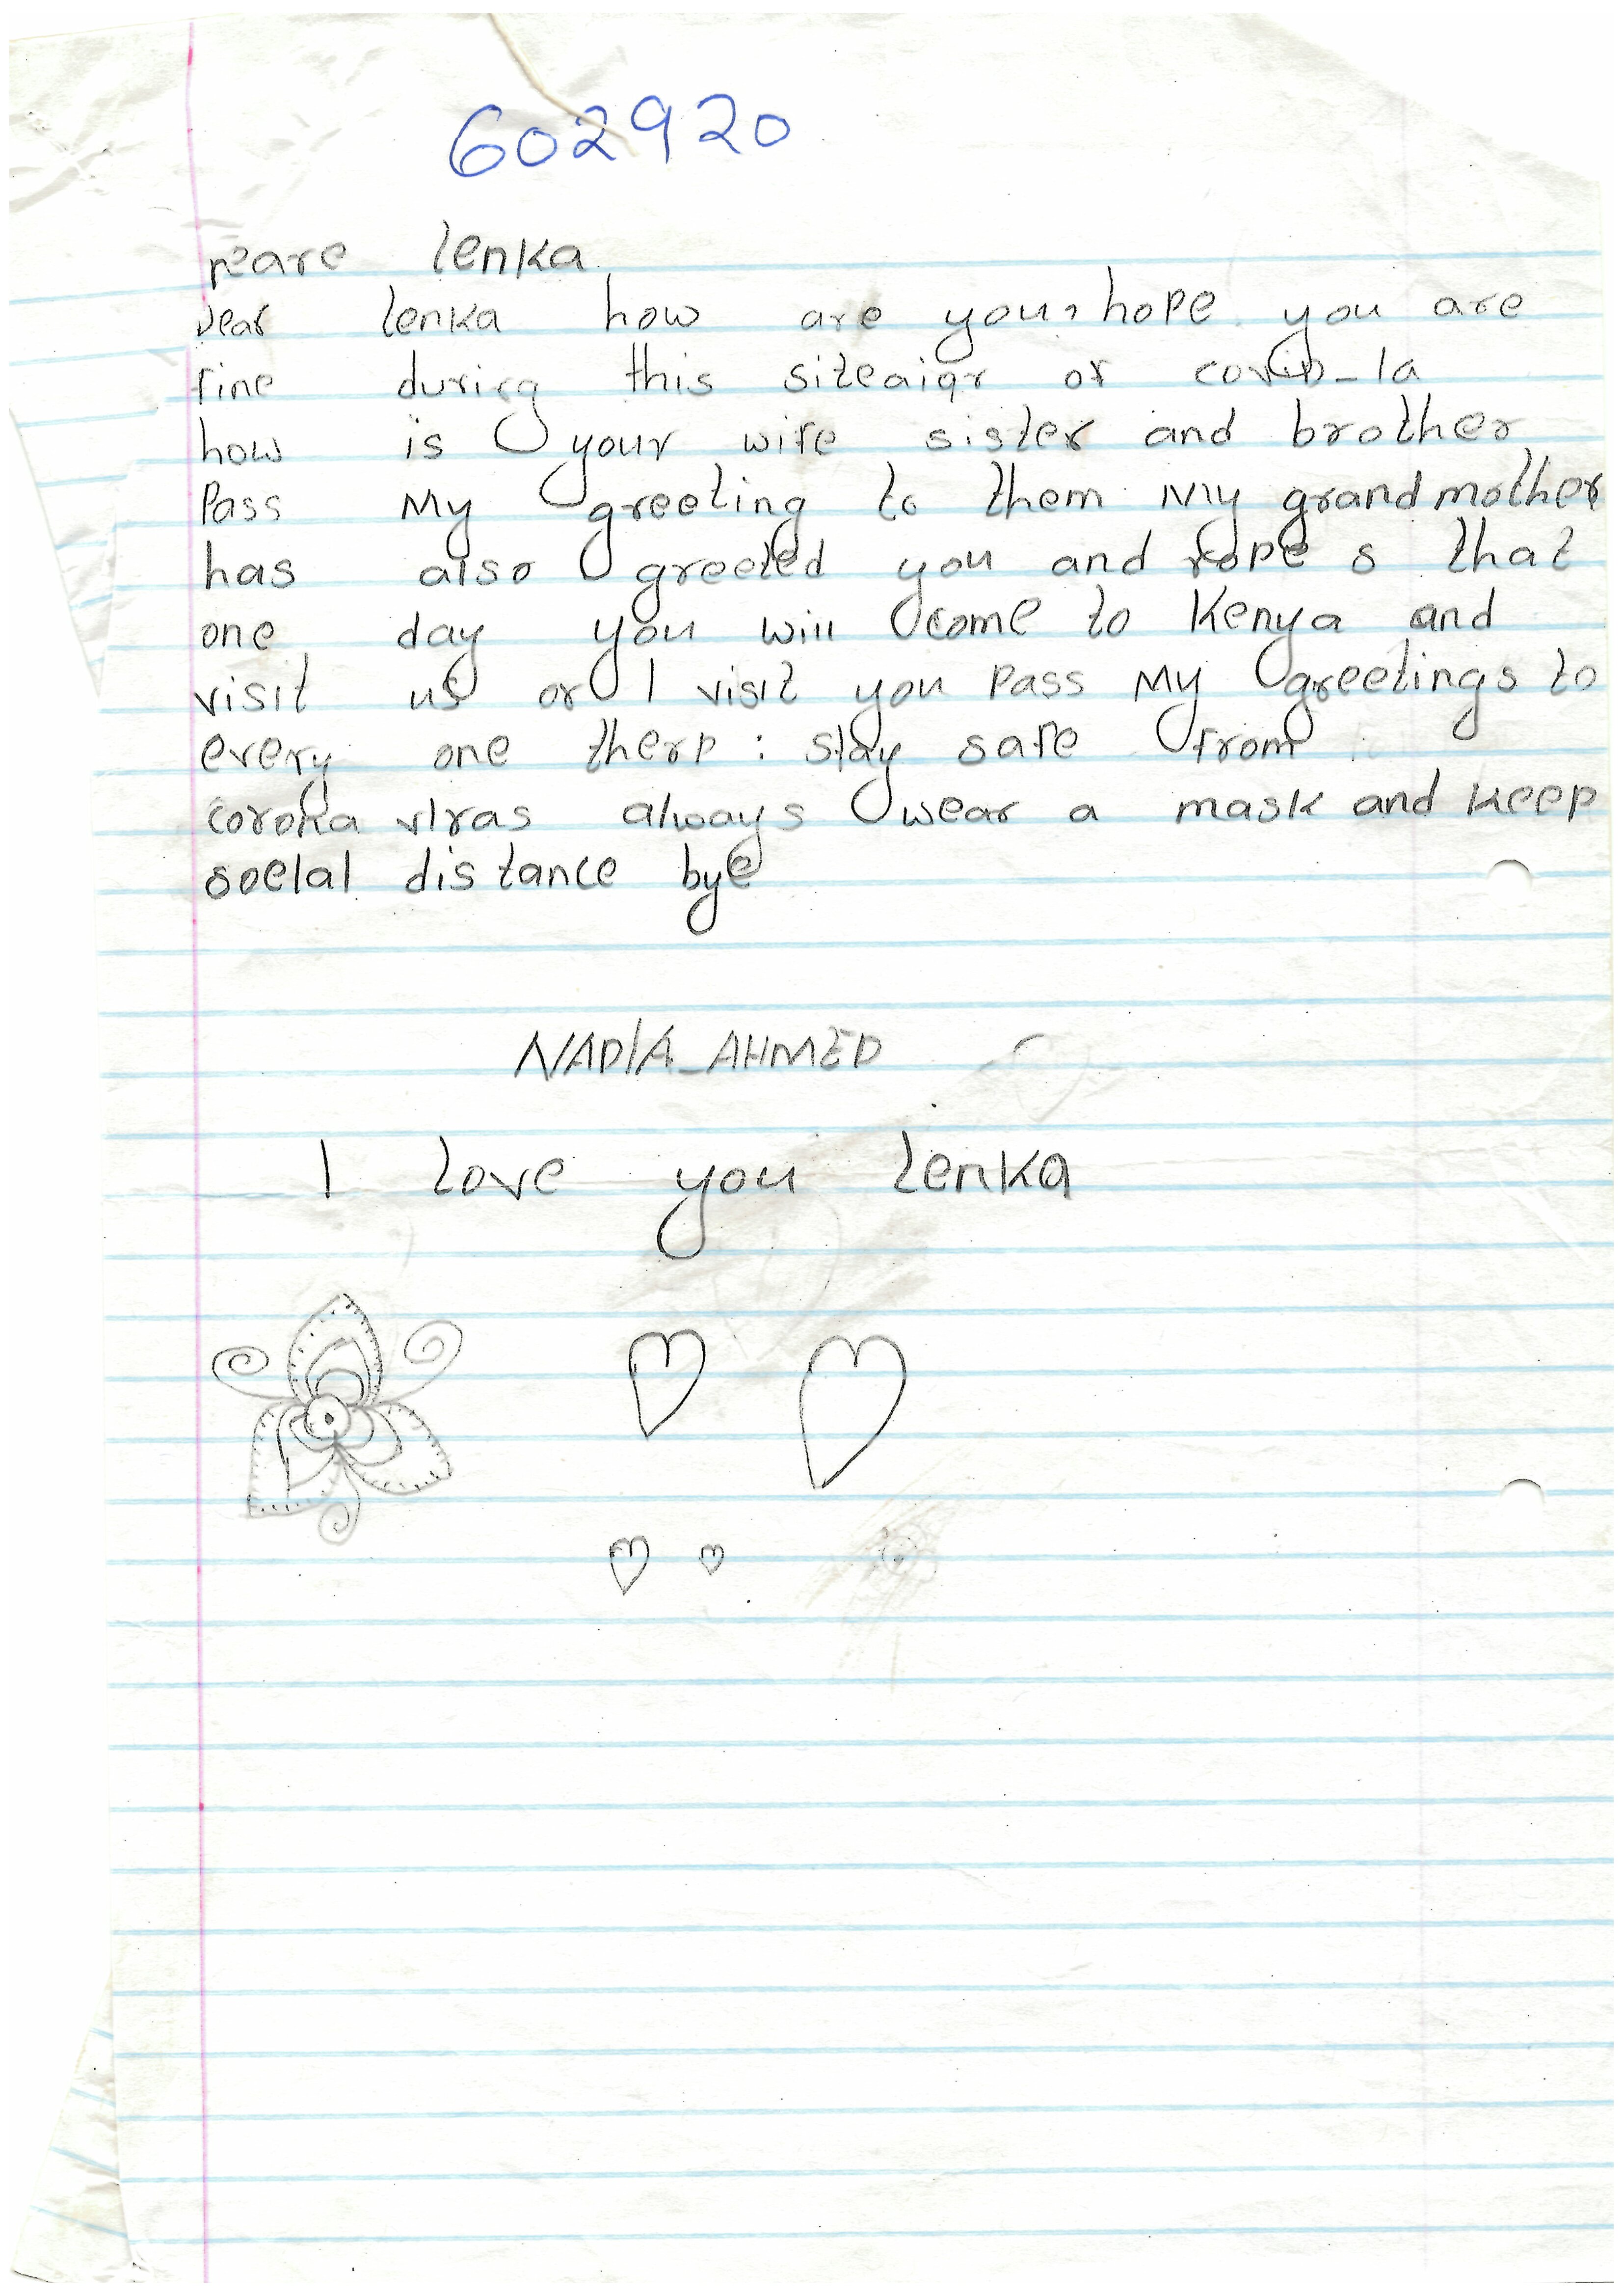 602920
Deare lenka
Dear lenka how are you, hope you are
fine during this siteaiqr of covid_19
how is your wife sister and brother
Pass My greeting to them My grandmother
has also greeted you and hope s that
one day you will come to Kenya and
visit us or I visit you Pass My greetings to
every one there : stay safe from
corona viras always wear a mask and keep
soclal distance bye
NADIA_AHMED
I love you lenka